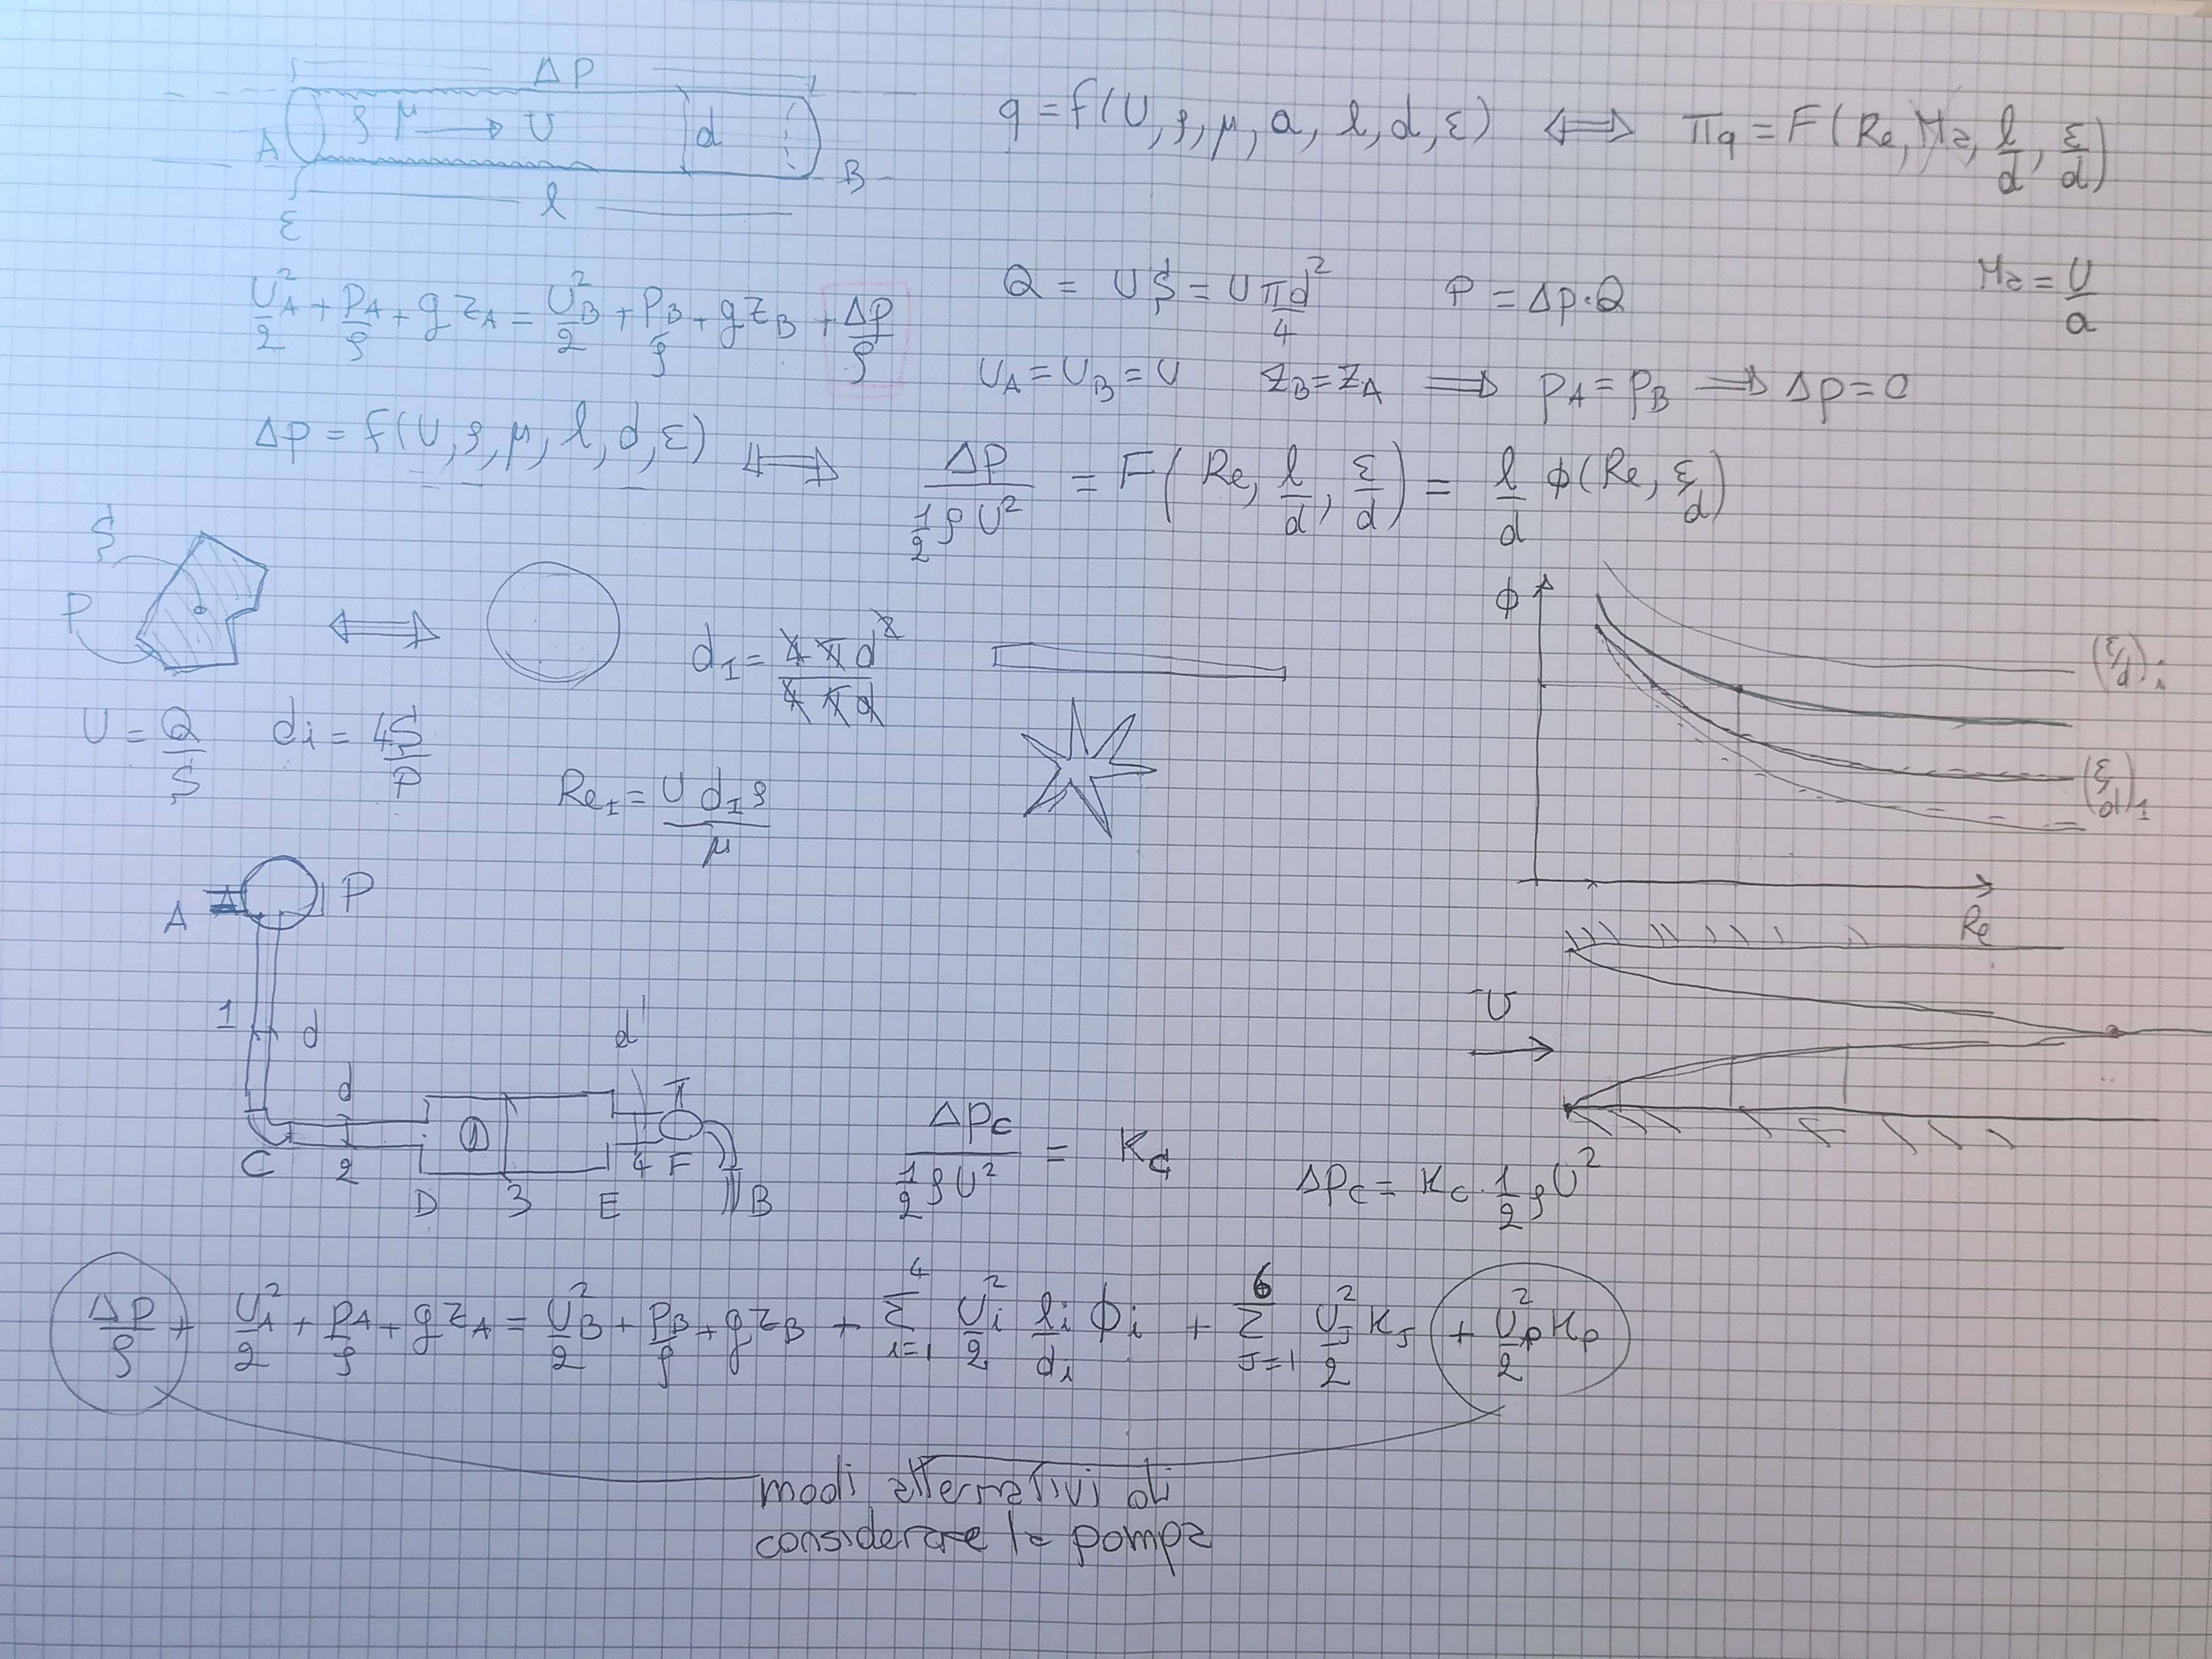 Δp
A ρ μ → U d B
ε l
q = f(U, ρ, μ, a, l, d, ε) ⟺ πq = F(Re, Ma, l/d, ε/d)
U_A²/2 + p_A/ρ + g z_A = U_B²/2 + p_B/ρ + g z_B + Δp/ρ
Q = U S = U πd²/4 P = Δp·Q Ma = U/a
U_A = U_B = U z_B = z_A ⟹ p_A = p_B ⟹ Δp = 0
Δp = f(U, ρ, μ, l, d, ε) ⟺ Δp / ½ρU² = F(Re, l/d, ε/d) = l/d φ(Re, ε/d)
S
P ⟺
d_I = 4πd²/4πd
U = Q/S di = 4S/P
Re_I = U d_I ρ/μ
φ
(ε/d)i
(ε/d)1
Re
A P
1 d
d d'
① T
C 2 D 3 E 4 F B
U →
Δp_C / ½ρU² = K_C
Δp_C = K_C · ½ρU²
Δp/ρ + U_A²/2 + p_A/ρ + g z_A = U_B²/2 + p_B/ρ + g z_B + Σ_{i=1}^{4} U_i²/2 l_i/d_i φ_i + Σ_{J=1}^{6} U_J²/2 K_J + U_P²/2 K_P
modi alternativi di
considerare la pompa